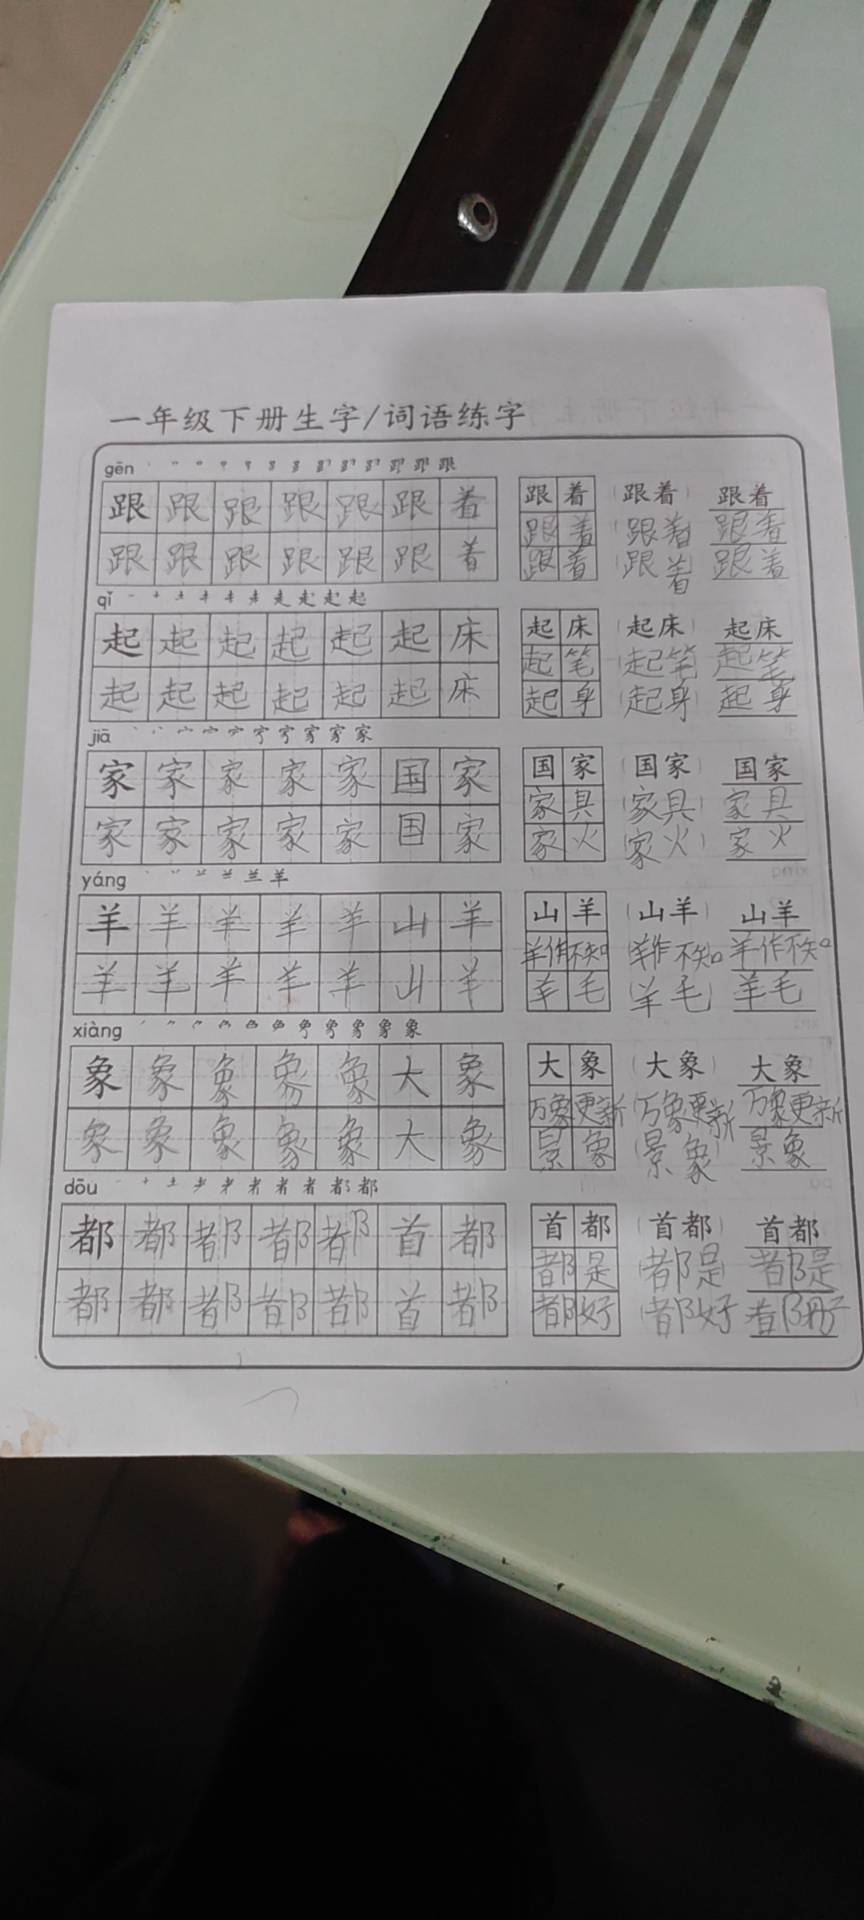 一年级下册生字/词语练字
gēn
跟 跟 跟 跟 跟 跟 着 跟 着 (跟着) 跟着
跟着 跟着 跟着
跟 跟 跟 跟 跟 跟 着 跟着 跟着 跟着
qǐ
起 起 起 起 起 起 床 起 床 (起床) 起床
起笔 起笔 起笔
起 起 起 起 起 起 床 起身 起身 起身
jiā
家 家 家 家 家 国 家 国 家 (国家) 国家
家具 (家具) 家具
家 家 家 家 家 国 家 家火 家火 家火
yáng
羊 羊 羊 羊 羊 山 羊 山 羊 (山羊) 山羊
羊作不知 羊作不知 羊作不知
羊 羊 羊 羊 羊 山 羊 羊毛 (羊毛) 羊毛
xiàng
象 象 象 象 象 大 象 大 象 (大象) 大象
万象更新 (万象更新 万象更新
象 象 象 象 象 大 象 景象 (景象) 景象
dōu
都 都 都 都 都 首 都 首 都 (首都) 首都
都是 (都是 都是
都 都 都 都 都 首 都 都好 (都好 都好